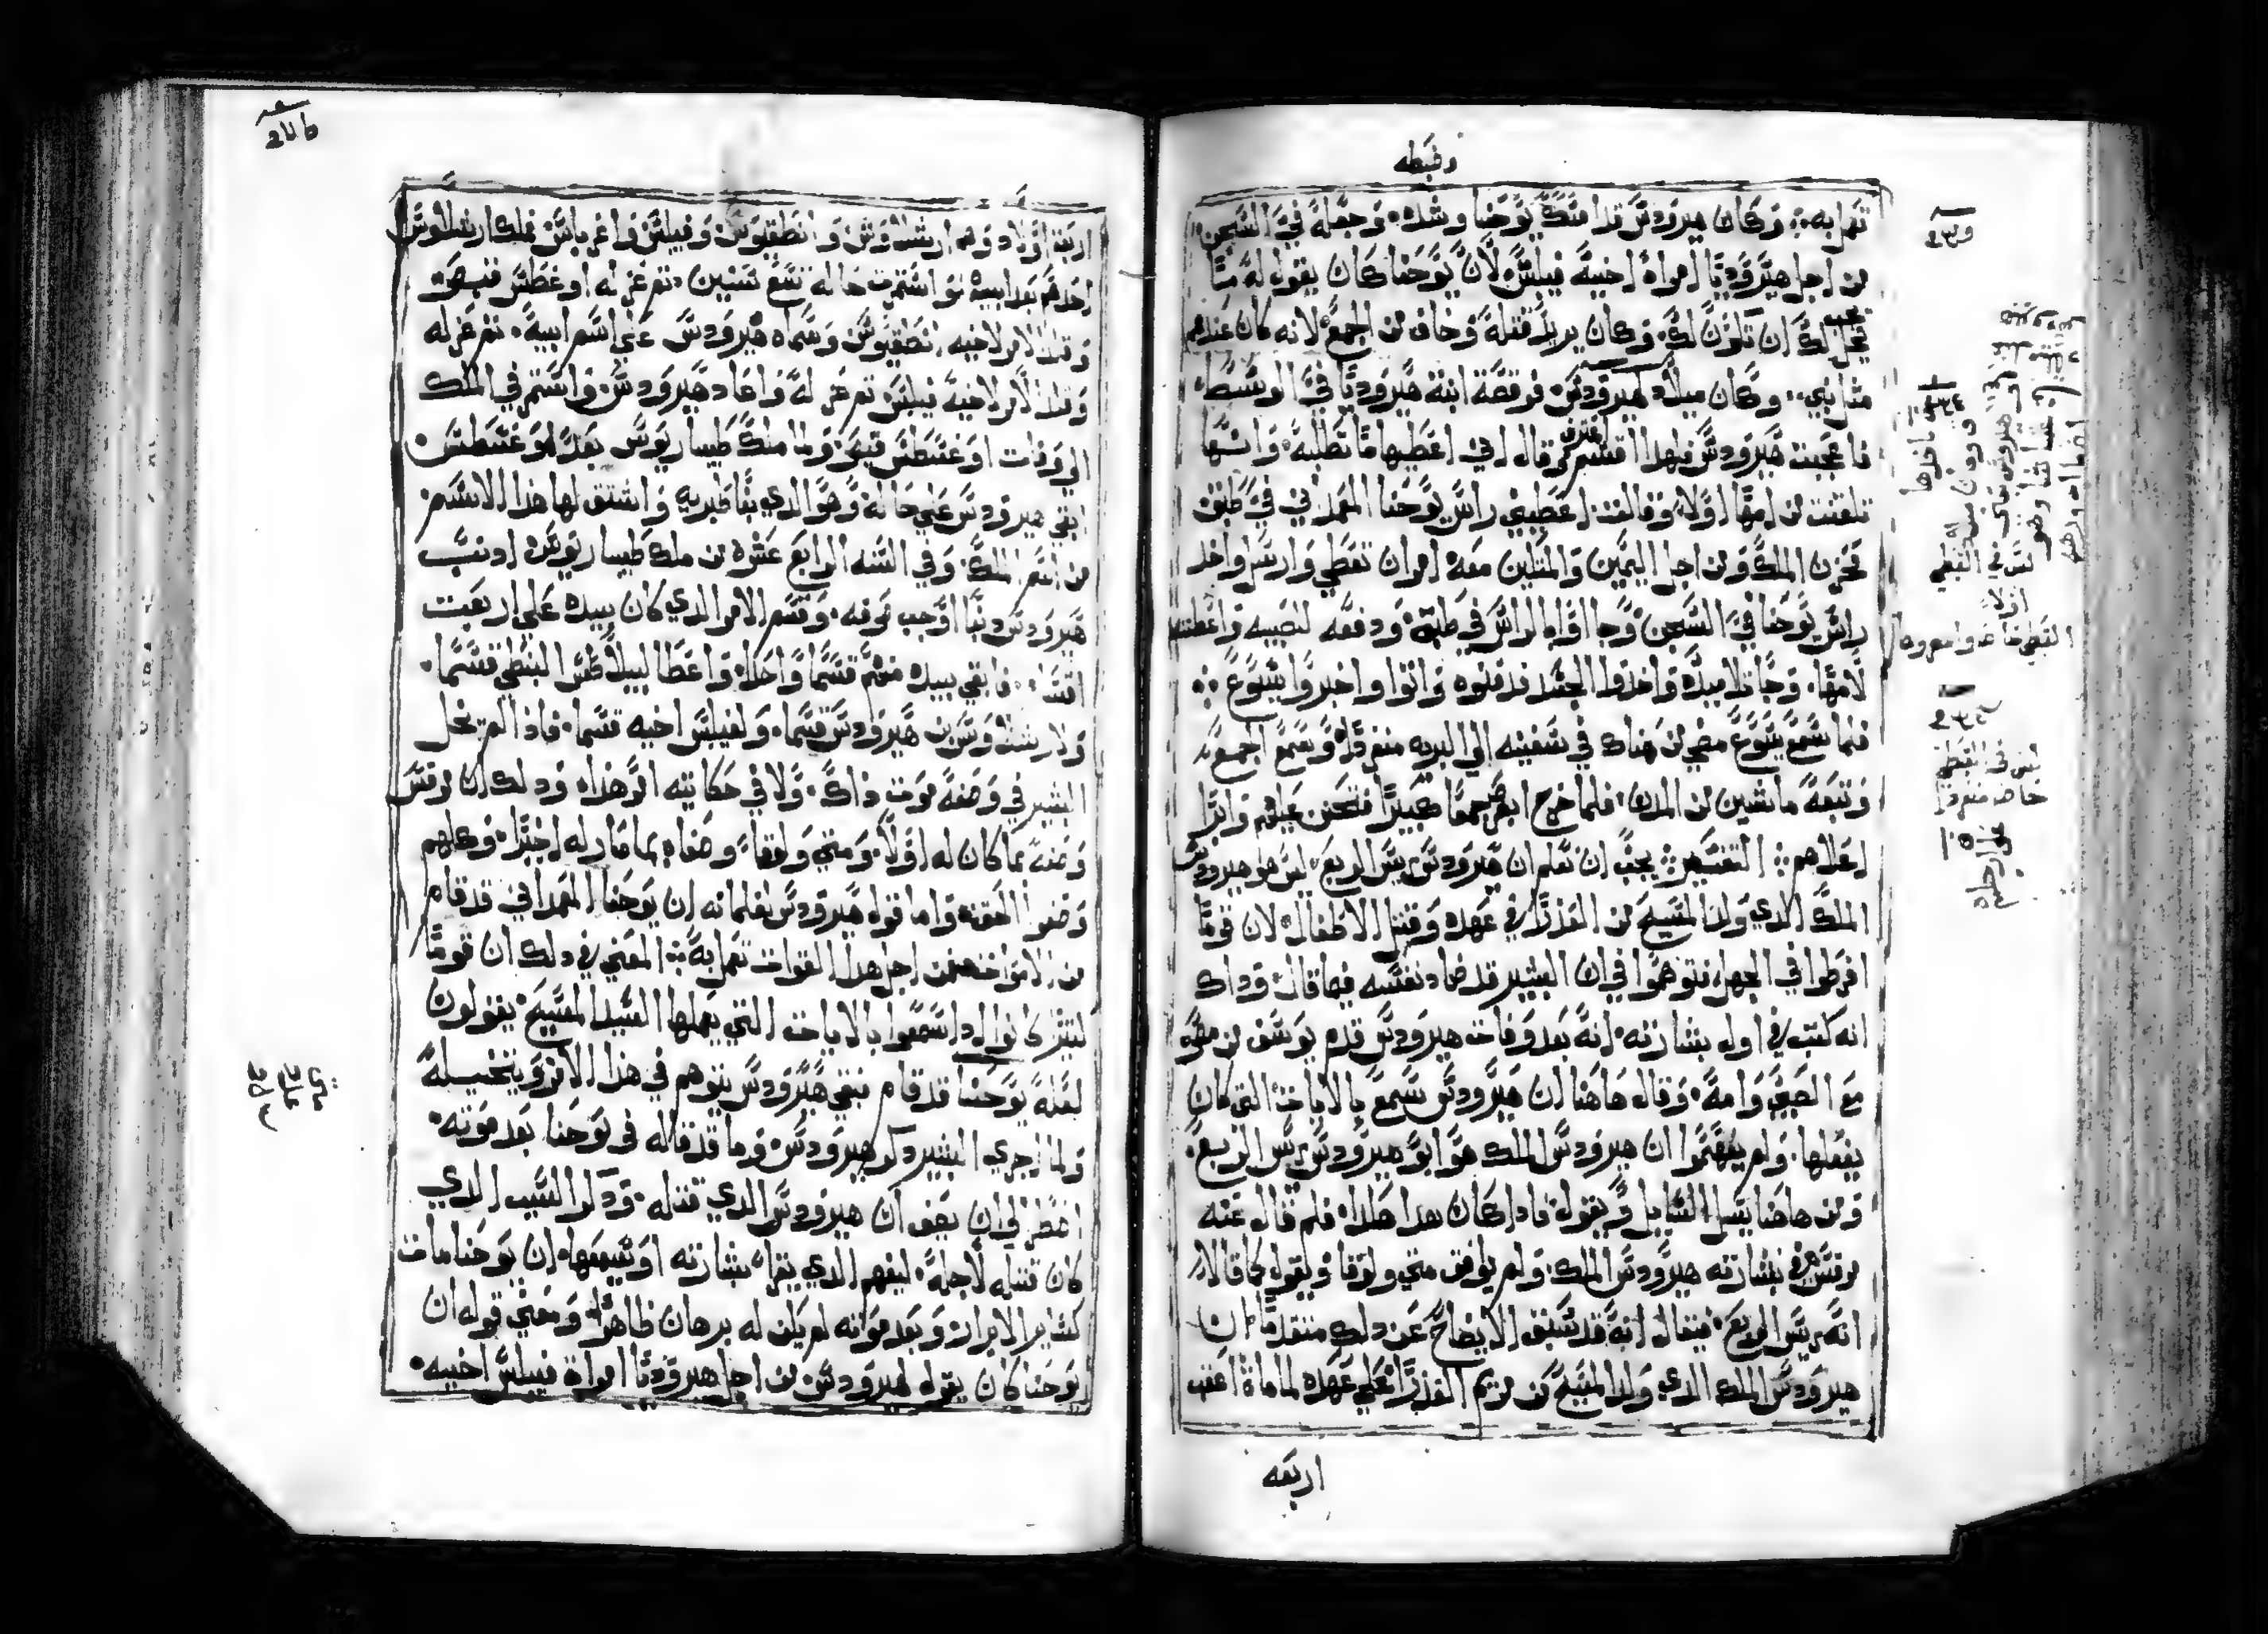 وضبطه
تعمل به ⁘ وكان هيرودس قد امسك يوحنا وشده وجعله في السجن
من اجل هيروديا امراة اخيه فيلبس لان يوحنا كان يقول له ما
يحل لك ان تكون لك وكان يريد قتله وخاف من الجمع لانه كان عندهم
مثل نبي وكان ميلاد لهيرودس فرقصة ابنة هيروديا في الوسط
فاعجبت هيرودس فلهدا اقسم وقال اني اعطيها ما تطلبه وانها
تلقنت من امها اولا وقالت اعطيني راس يوحنا المعمداني في طبق
فحزن الملك ومن اجل اليمين والمتكين معه امر ان تعطي وارسل واخد
راس يوحنا في السجن وجا اوا بالراس في طبق ودفعه للصبيه واعطته
لامها وجا تلاميده واخدوا الجسد فدفنوه واتوا واخبروا يسوع ⁘
فلما سمع يسوع مضي من هناك في سفينه الي البريه منفردا وسمع الجمع
وتبعه ماشيين من المدن فلما خرج ابصر جمعا كبيرا فتحنن عليهم وابرا
اعلاهم ⁘ التفسير ⁘ يجب ان نعلم ان هيرودس ريس الربع ليس هو هيرودس
الملك الدي ولد المسيح من العذرا في عهده وقتل الاطفال لان قوما
افرطوا في الجهل فتوهموا في ان البشير قد ضاد نفسه فيما قال وداك
انه كتب في اول بشارته انه بعد وفات هيرودس قدم يوسف من مصر
مع الصبي وامه وقال هاهنا ان هيرودس سمع بالايات التي كان
يفعلها ولم يفهموا ان هيرودس الملك هو ابو هيرودس ريس الربع
ومن هاهنا يسل السايل ويقول فادا كان هدا هكدا فلم قال عنه
مرقس في بشارته هيرودس الملك ولم يوافق متي ولوقا ويقول كما قالا
انه ريس الربع فيقال انه قد سبق الايضاح عن دلك متقدما ان
هيرودس الملك الدي ولد المسيح من مريم العذرا علي عهده لما مات اعقب
اربعه
اربعة اولاد وهم ارشلاوس وانطيقيوس وفيلبس واغرباس فملك ارشلاوس
احدهم بعد ابيه واستمرت حاله تسع سنين ثم عزله اوغسطس قيصر
وقلد الامر لاخيه انطيقيوس وسماه هيرودس علي اسم ابيه ثم عزله
وقلد الامر لاخيه فيلبس ثم عزله واعاد هيرودس واستمر في الملك
الي وفات اوغسطس قيصر ولما ملك طيباريوس بعد اوغسطس
ابقي هيرودس علي حاله وهو الدي بنا طبريه واشتق لها هدا الاسم
من اسم الملك وفي السنه الرابع عشره من ملك طيباريوس ادنب
هيرودس دنبا اوجب نوفه وقسم الامر الدي كان بيده علي اربعت
اقسام فابقي بيده منهم قسما واحدا واعطا لبيلاطس البنطي قسما
ولارشلاوس بن هيرودس قسما ولفيلبس اخيه قسما فادا لم يخل
البشير في وصفه موت داك ولا في حكايته امر هدا ودلك ان مرقس
وصفه بما كان له اولا ومتي ولوقا وصفاه بما صار له اخيرا وكلهم
وصفوا الحق واما قول هيرودس لغلمانه ان يوحنا المعمداني قد قام
من الاموات فمن اجل هدا القوات تعمل به ⁘ المعني في دلك ان قوما
كتير كانوا ادا سمعوا بالايات التي يعملها السيد المسيح يقولون
لعله يوحنا قد قام فبقي هيرودس يتوهم في هدا الامر ويتخيله
ولما اجري البشير دكر هيرودس وما قد قاله في يوحنا بعد موته
اضطر الي ان يصف ان هيرودس الدي قتله ودكر السبب الدي
كان قتله لاجله ليفهم الدي يقرا بشارته او يسمعها ان يوحنا مات
كساير الابرار وبعد موته لم يكن له برهان ظاهر ومعني قوله ان
يوحنا كان يقول لهيرودس من اجل هيروديا امراة فيبلس اخيه